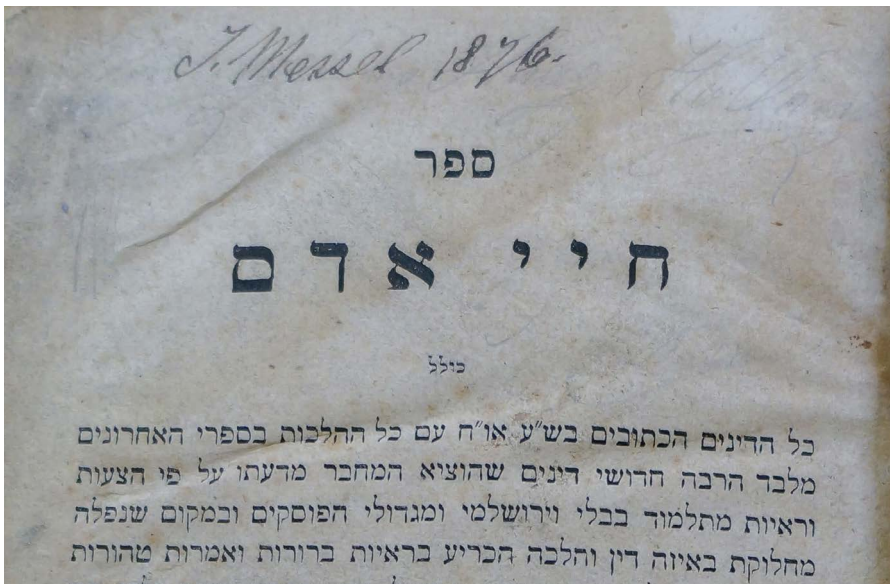 J. Messel 1876.
ספר
חיי אדם
כולל
כל הדינים הכתובים בש״ע או״ח עם כל ההלכות בספרי האחרונים
מלבד הרבה חדושי דינים שהוציא המחבר מדעתו על פי הצעות
וראיות מתלמוד בבלי וירושלמי ומגדולי הפוסקים ובמקום שנפלה
מחלוקת באיזה דין והלכה הכריע בראיות ברורות ואמרות טהורות